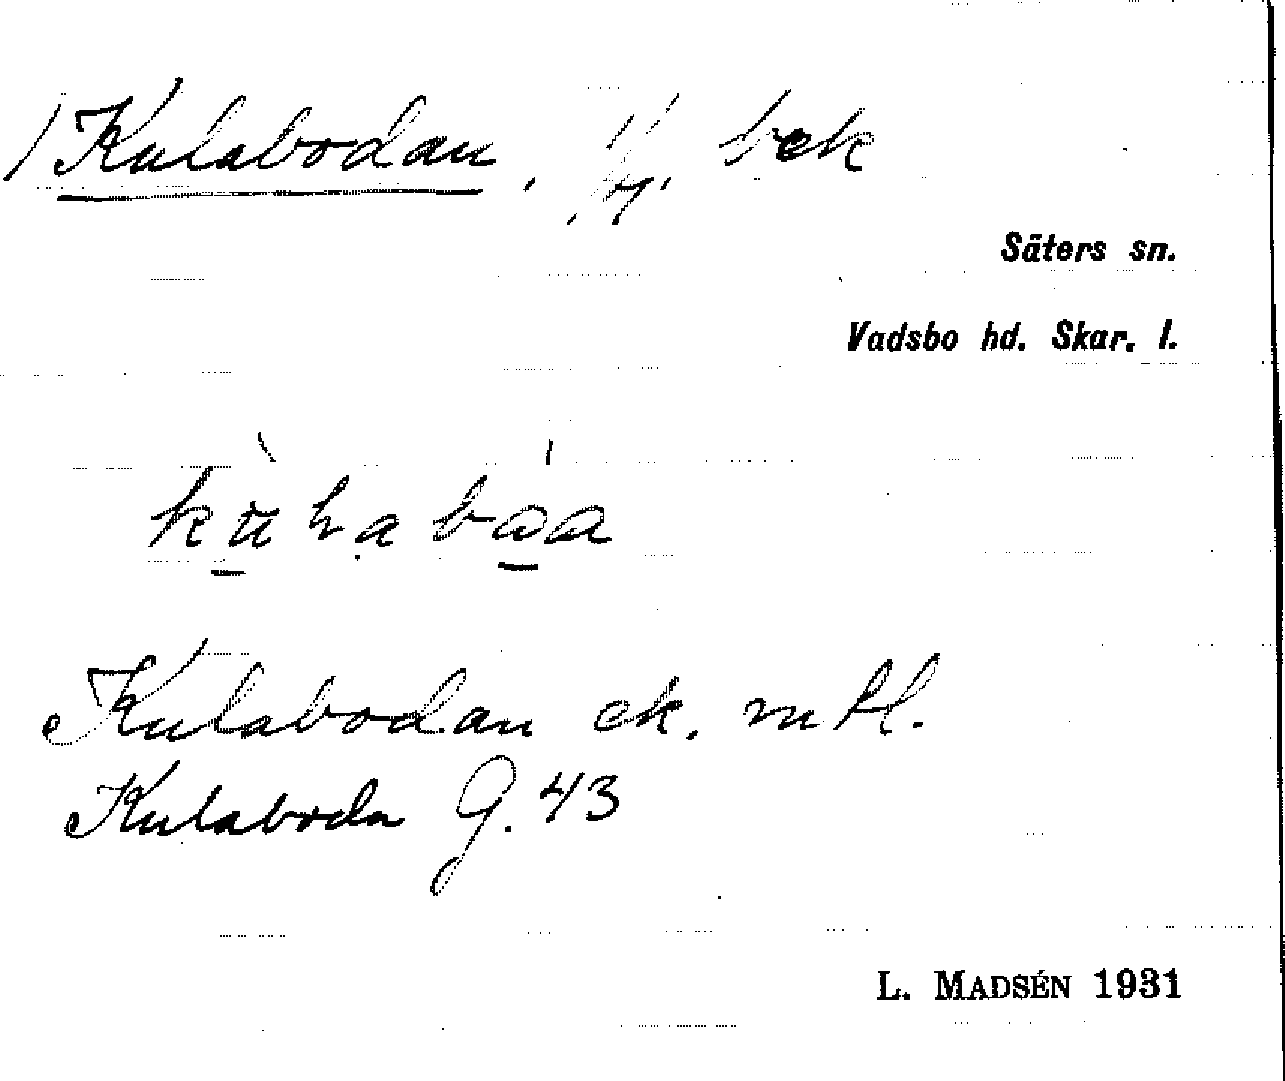 Kulabodan, bek
Säters sn.
Vadsbo hd. Skar. l.
Kulabodan ek. m fl.
Kulaboda G. 43
L. MADSÉN 1931